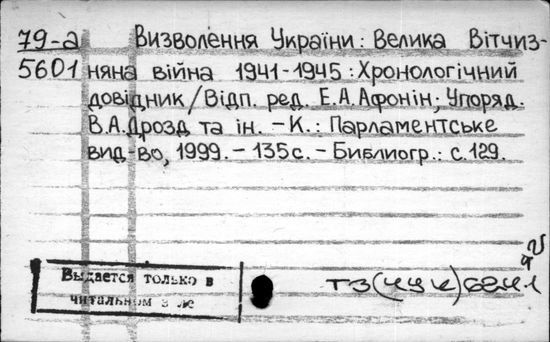 79-а Визволення України: Велика Вітчиз-
5601 няна війна 1941-1945: Хронологічний
довідник/Відп. ред. Е.А.Афонін; Упоряд.
В.А.Дрозд та ін. - К.: Парламентське
вид-во, 1999. - 135с. - Библиогр.: с.129.
Выдается только в
читальном